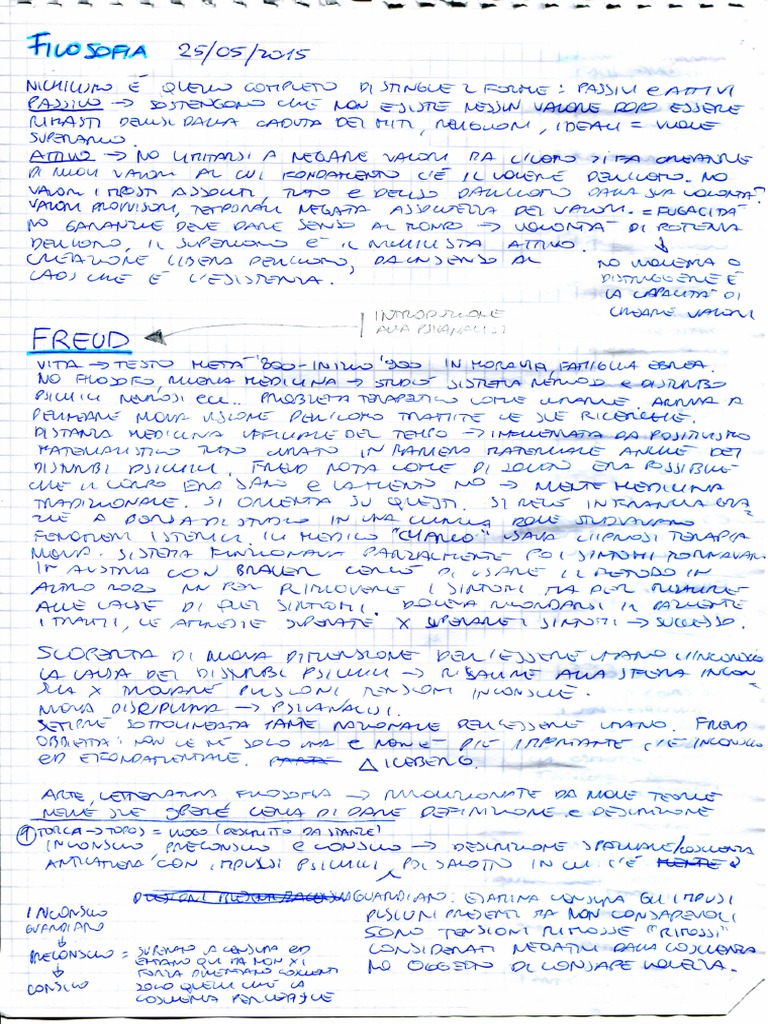 FILOSOFIA 25/05/2015
NICHILISMO È QUELLO COMPLETO DISTINGUE 2 FORME: PASSIVI e ATTIVI
PASSIVO → SOSTENGONO CHE NON ESISTE NESSUN VALORE DOPO ESSERE
RIMASTI DELUSI DALLA CADUTA DEI MITI, RELIGIONI, IDEALI = VUOLE
SUPERARLO.
ATTIVO → NO LIMITARSI A NEGARE VALORI MA L'UOMO SI FA CREATORE
DI NUOVI VALORI AL CUI FONDAMENTO C'È IL VOLERE DELL'UOMO. NO
VALORI IMPOSTI ASSOLUTI, TUTTO È DECISO DALL'UOMO DALLA SUA VOLONTÀ
VALORI PROVVISORI, TEMPORALI NEGATA ASSOLUTEZZA DEI VALORI. = FUGACITÀ
NO GARANZIE DEVE DARE SENSO AL MONDO → VOLONTÀ DI POTENZA
DELL'UOMO, IL SUPERUOMO È IL NICHILISTA ATTIVO.
CREAZIONE LIBERA DELL'UOMO, DA UN SENSO AL
CAOS CHE È L'ESISTENZA.
NO VIOLENZA O
DISTRUGGERE È
LA CAPACITÀ DI
CREARE VALORI
INTRODUZIONE
ALLA PSICANALISI
FREUD
VITA → METÀ '800 - INIZIO '900 IN MORAVIA, FAMIGLIA EBREA.
NO FILOSOFO, MEDICINA → STUDIO SISTEMA NERVOSO e DISTURBI
PSICHICI NEVROSI ecc.. PROBLEMA TERAPEUTICO COME CURARLE. ARRIVA A
NUOVA VISIONE DELL'UOMO TRAMITE LE SUE RICERCHE.
DISTANZA MEDICINA UFFICIALE DEL TEMPO → INFLUENZATA DA POSITIVISTO
MATERIALISTICO TUTTO CURATO IN MANIERA MATERIALE ANCHE DEI
DISTURBI PSICHICI. FREUD NOTA COME DI SOLITO ERA POSSIBILE
CHE IL CORPO ERA SANO E LA MENTE NO → MEDICINA
TRADIZIONALE. SI ORIENTA SU QUESTI. SI RECÒ IN FRANCIA GRA-
ZIE A BORSA DI STUDIO IN UNA CLINICA DOVE STUDIAVANO
FENOMENI ISTERICI. IL MEDICO USAVA L'IPNOSI TERAPIA
NUOVA. SISTEMA FUNZIONAVA PARZIALMENTE POI SINTOMI TORNAVAN.
IN AUSTRIA CON CERCÒ DI USARE IL METODO IN
ALTRO MODO NN PER RIMUOVERE I SINTOMI MA PER RISALIRE
ALLE CAUSE DI QUEI SINTOMI. DOVEVA RICORDARSI IL PAZIENTE
I TRAUMI, LE SUPERATE X SUPERARE I SINTOMI → SUCCESSO.
SCOPERTA DI NUOVA DIMENSIONE DELL'ESSERE UMANO L'INCONSCIO
LA CAUSA DEI DISTURBI PSICHICI → RISALIRE ALLA SFERA INCON
SCIA X TROVARE PULSIONI TENSIONI INCONSCIE.
NUOVA DISCIPLINA → PSICANALISI.
SEMPRE SOTTOLINEATA PARTE RAZIONALE DELL'ESSERE UMANO. FREUD
OBBIETTA: NON CE NÈ SOLO UNA E NON È PIÙ IMPORTANTE C'È INCONSCIO
ED È FONDAMENTALE. △ ICEBERG.
ARTE, LETTERATURA FILOSOFIA → RIVOLUZIONATE DA NUOVE TEORIE
NELLE SUE OPERE CERCA DI DARE DEFINIZIONE e DESCRIZIONE
① TOPICA → TOPOS = LUOGO (DESCRITTO DA STANZE)
INCONSCIO PRECONSCIO e CONSCIO → DESCRIZIONE SPAZIALE/COSCIENZA
ANTICAMERA CON IMPULSI PSICHICI, POI SALOTTO IN CUI C'È
GUARDIANO: ESAMINA CENSURA GLI IMPULSI
PULSIONI PRESENTI MA NON CONSAPEVOLI
SONO TENSIONI RIMOSSE "RIMOSSI"
CONSIDERATI NEGATIVI DALLA COSCIENZA
NO OGGETTO DI CONSAPEVOLEZZA.
INCONSCIO
GUARDIANO
↓
PRECONSCIO = SUPERATO LA CENSURA ED
ENTRANO QUI MA NON X
FORZA DIVENTANO COSCIENTI
↓
CONSCIO SOLO QUELLI CHE LA
COSCIENZA PERCEPISCE